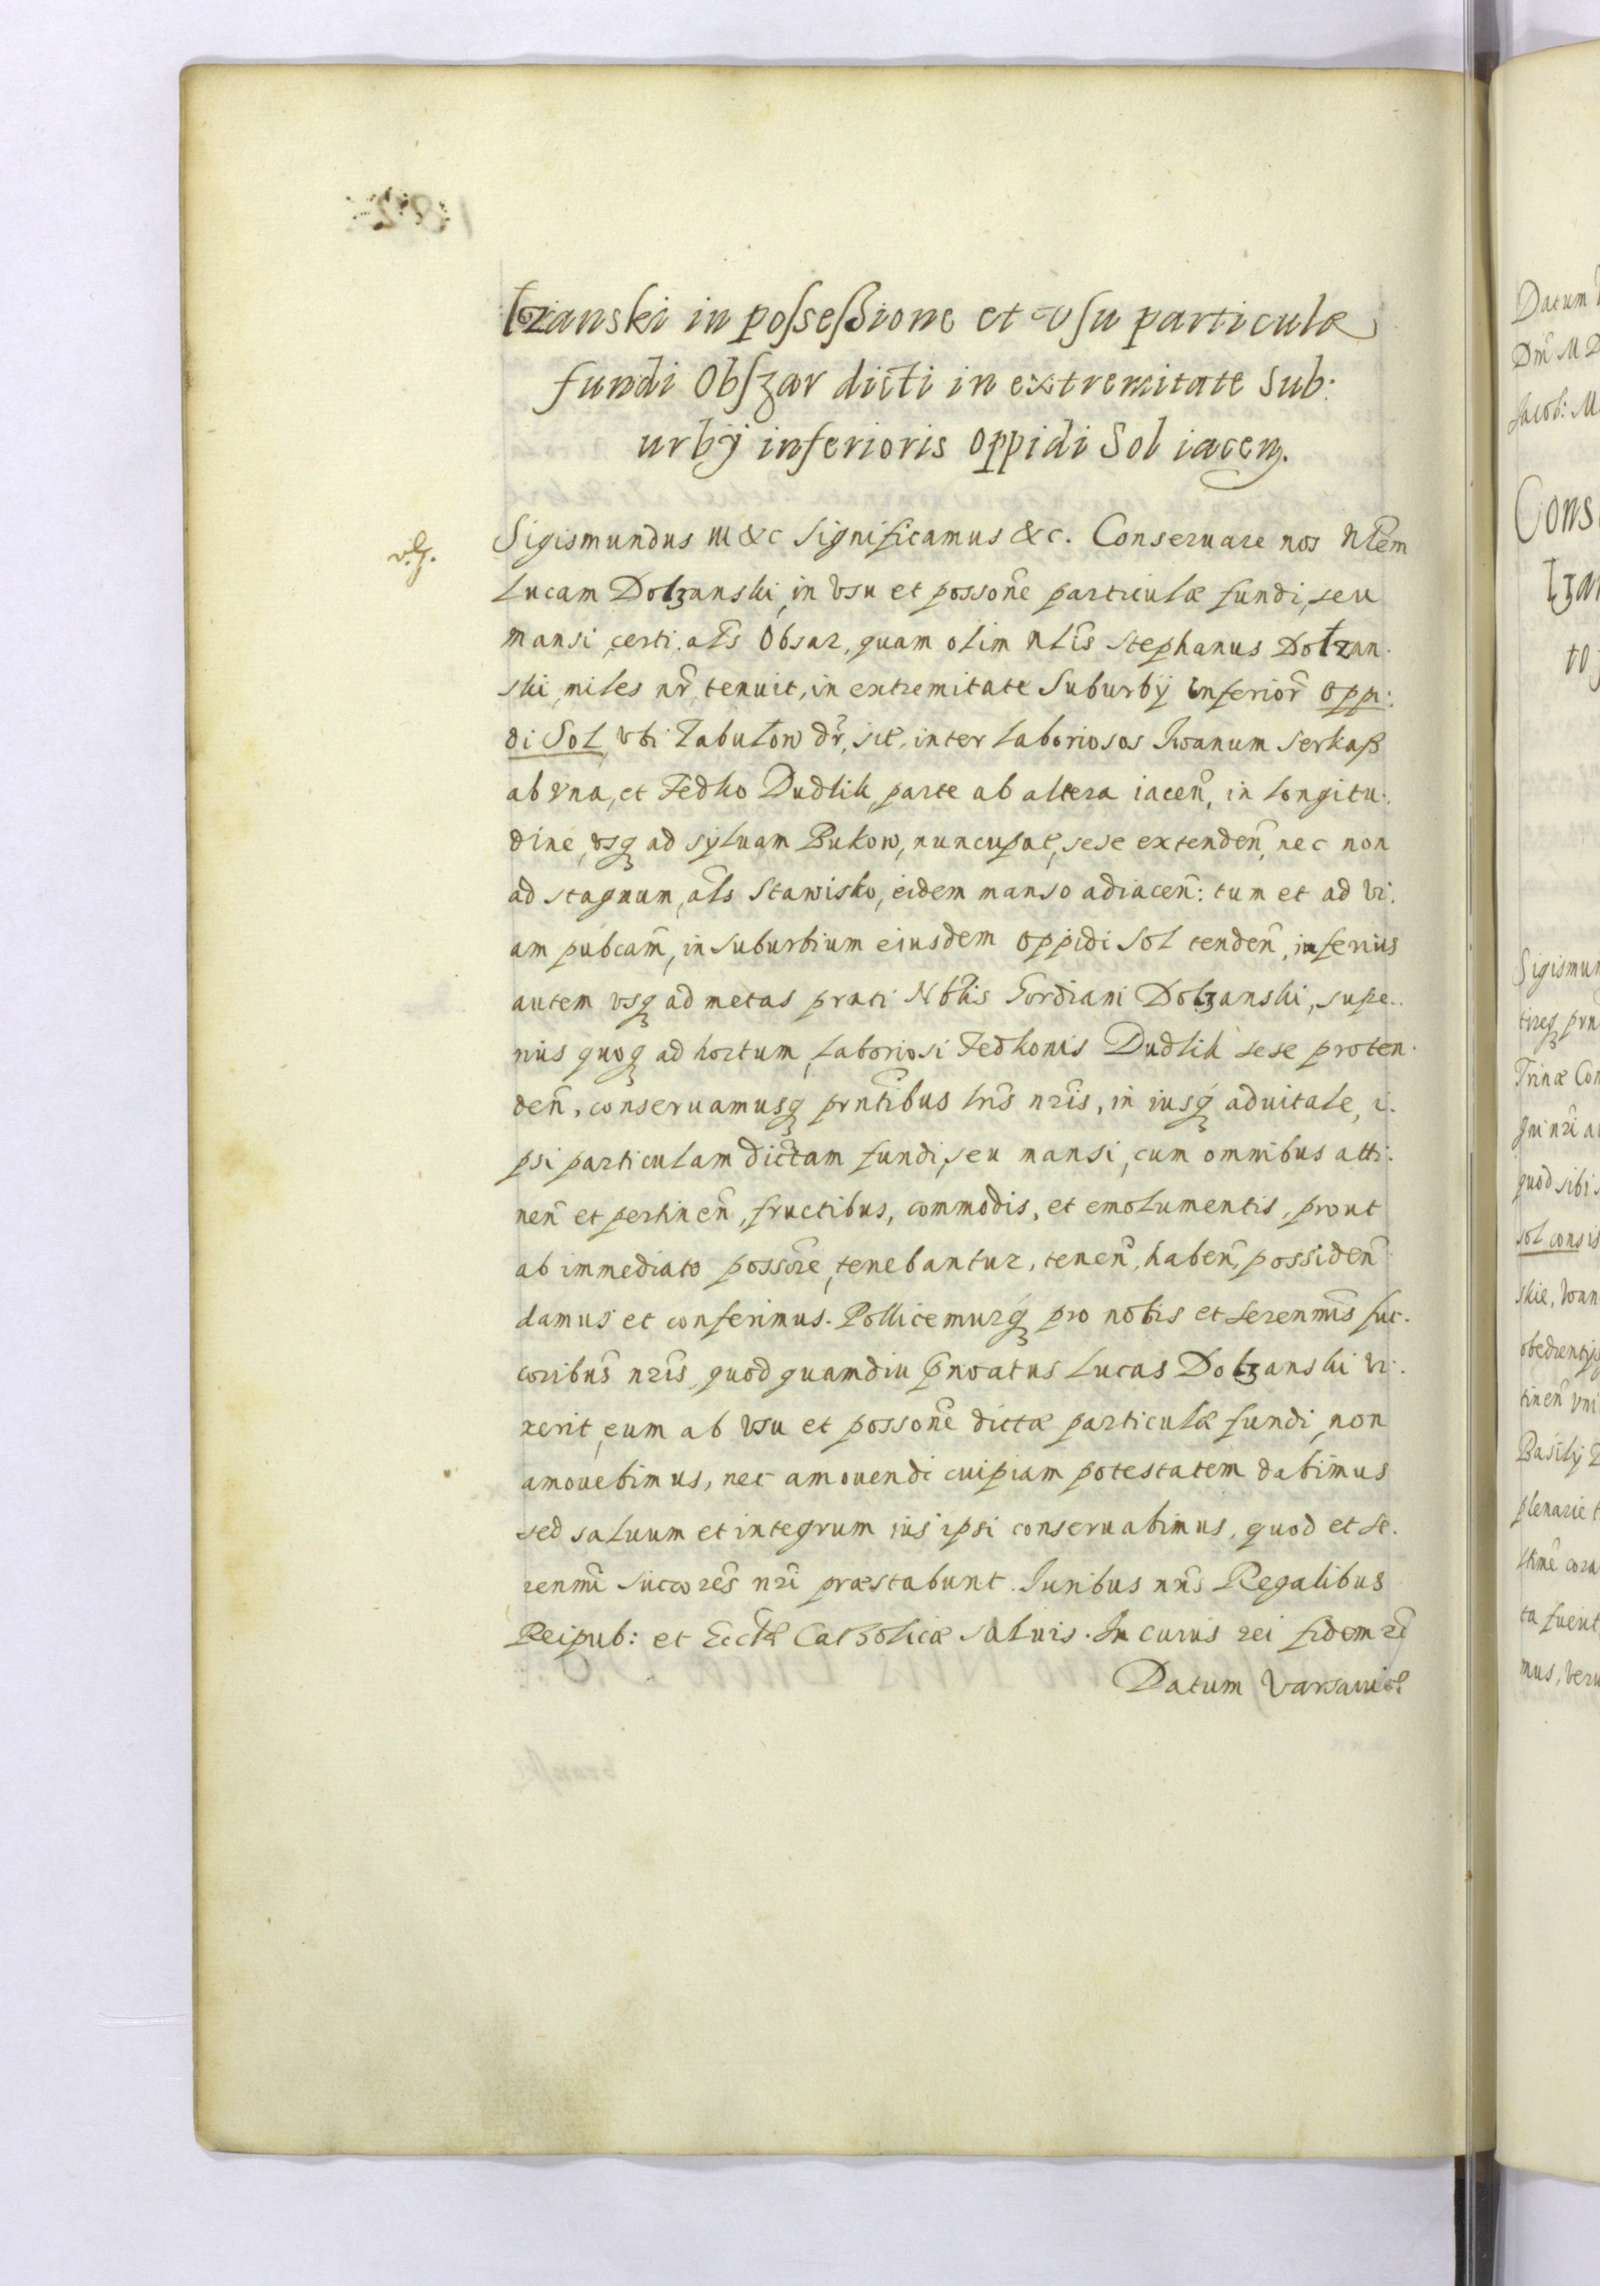 łzianski in possessione et vsu particulæ
fundi Obszar dicti in extremitate Sub:
urbij inferioris Oppidi Sol iaceñ.
Sigismundus III &c Significamus &c. Conseruare nos Nłem
Lucam Dołzanski, in vsu et possoñe particulæ fundi, seu
mansi, certi, als Obsar, quam olim Nlis Stephanus Dołzan-
ski, miles nr̃, tenuit, in extremitate Suburbij inferior̃ Oppi:
di Sol, vbi Zabułow dr̃, sit, inter laboriosos Iwanum Serkaß
ab vna, et Fedko Dudlik, parte ab altera iaceñ, in longitu:
dine, vsq ad syluam Bukow, nuncupat, sese extendeñ, nec non
ad stagnum, als Stawisko, eidem manso adiaceñ: tum et ad vi:
am pubcam̃, in suburbium eiusdem Oppidi Sol tendeñ, inferius
autem vsq ad metas prati Nblis Gordiani Dołzanski, supe:
rius quoq ad hortum, laboriosi Fedkonis Dudlik sese proten:
deñ, conseruamusq prñtibus lris nris, in iusq aduitale, i:
psi particulam dictam fundi, seu mansi, cum omnibus atti:
neñ et pertineñ, fructibus, commodis, et emolumentis, prout
ab immediato possore, tenebantur, teneñ, habeñ, possideñ
damus et conferimus. Pollicemurq pro nobis et Serenmis suc:
coribus nris, quod quamdiu p̃noatus Lucas Dołzanski vi:
xerit, eum ab vsu et possoñe dictæ particulæ fundi, non
amouebimus, nec amouendi cuipiam potestatem dabimus
sed saluum et integrum ius ipsi conseruabimus, quod et Se:
renmi succores nri præstabunt. Iuribus nris Regalibus
Reipub: et Ecclæ Catholicæ saluis. In cuius rei fidem &c
Datum Varsauiæ
Datum
Jacob: M
Cons
to
Sigismun
Trinæ Con
quod sibi
sol consis
Basilij
plenarie
ta fuerit
mus, veru